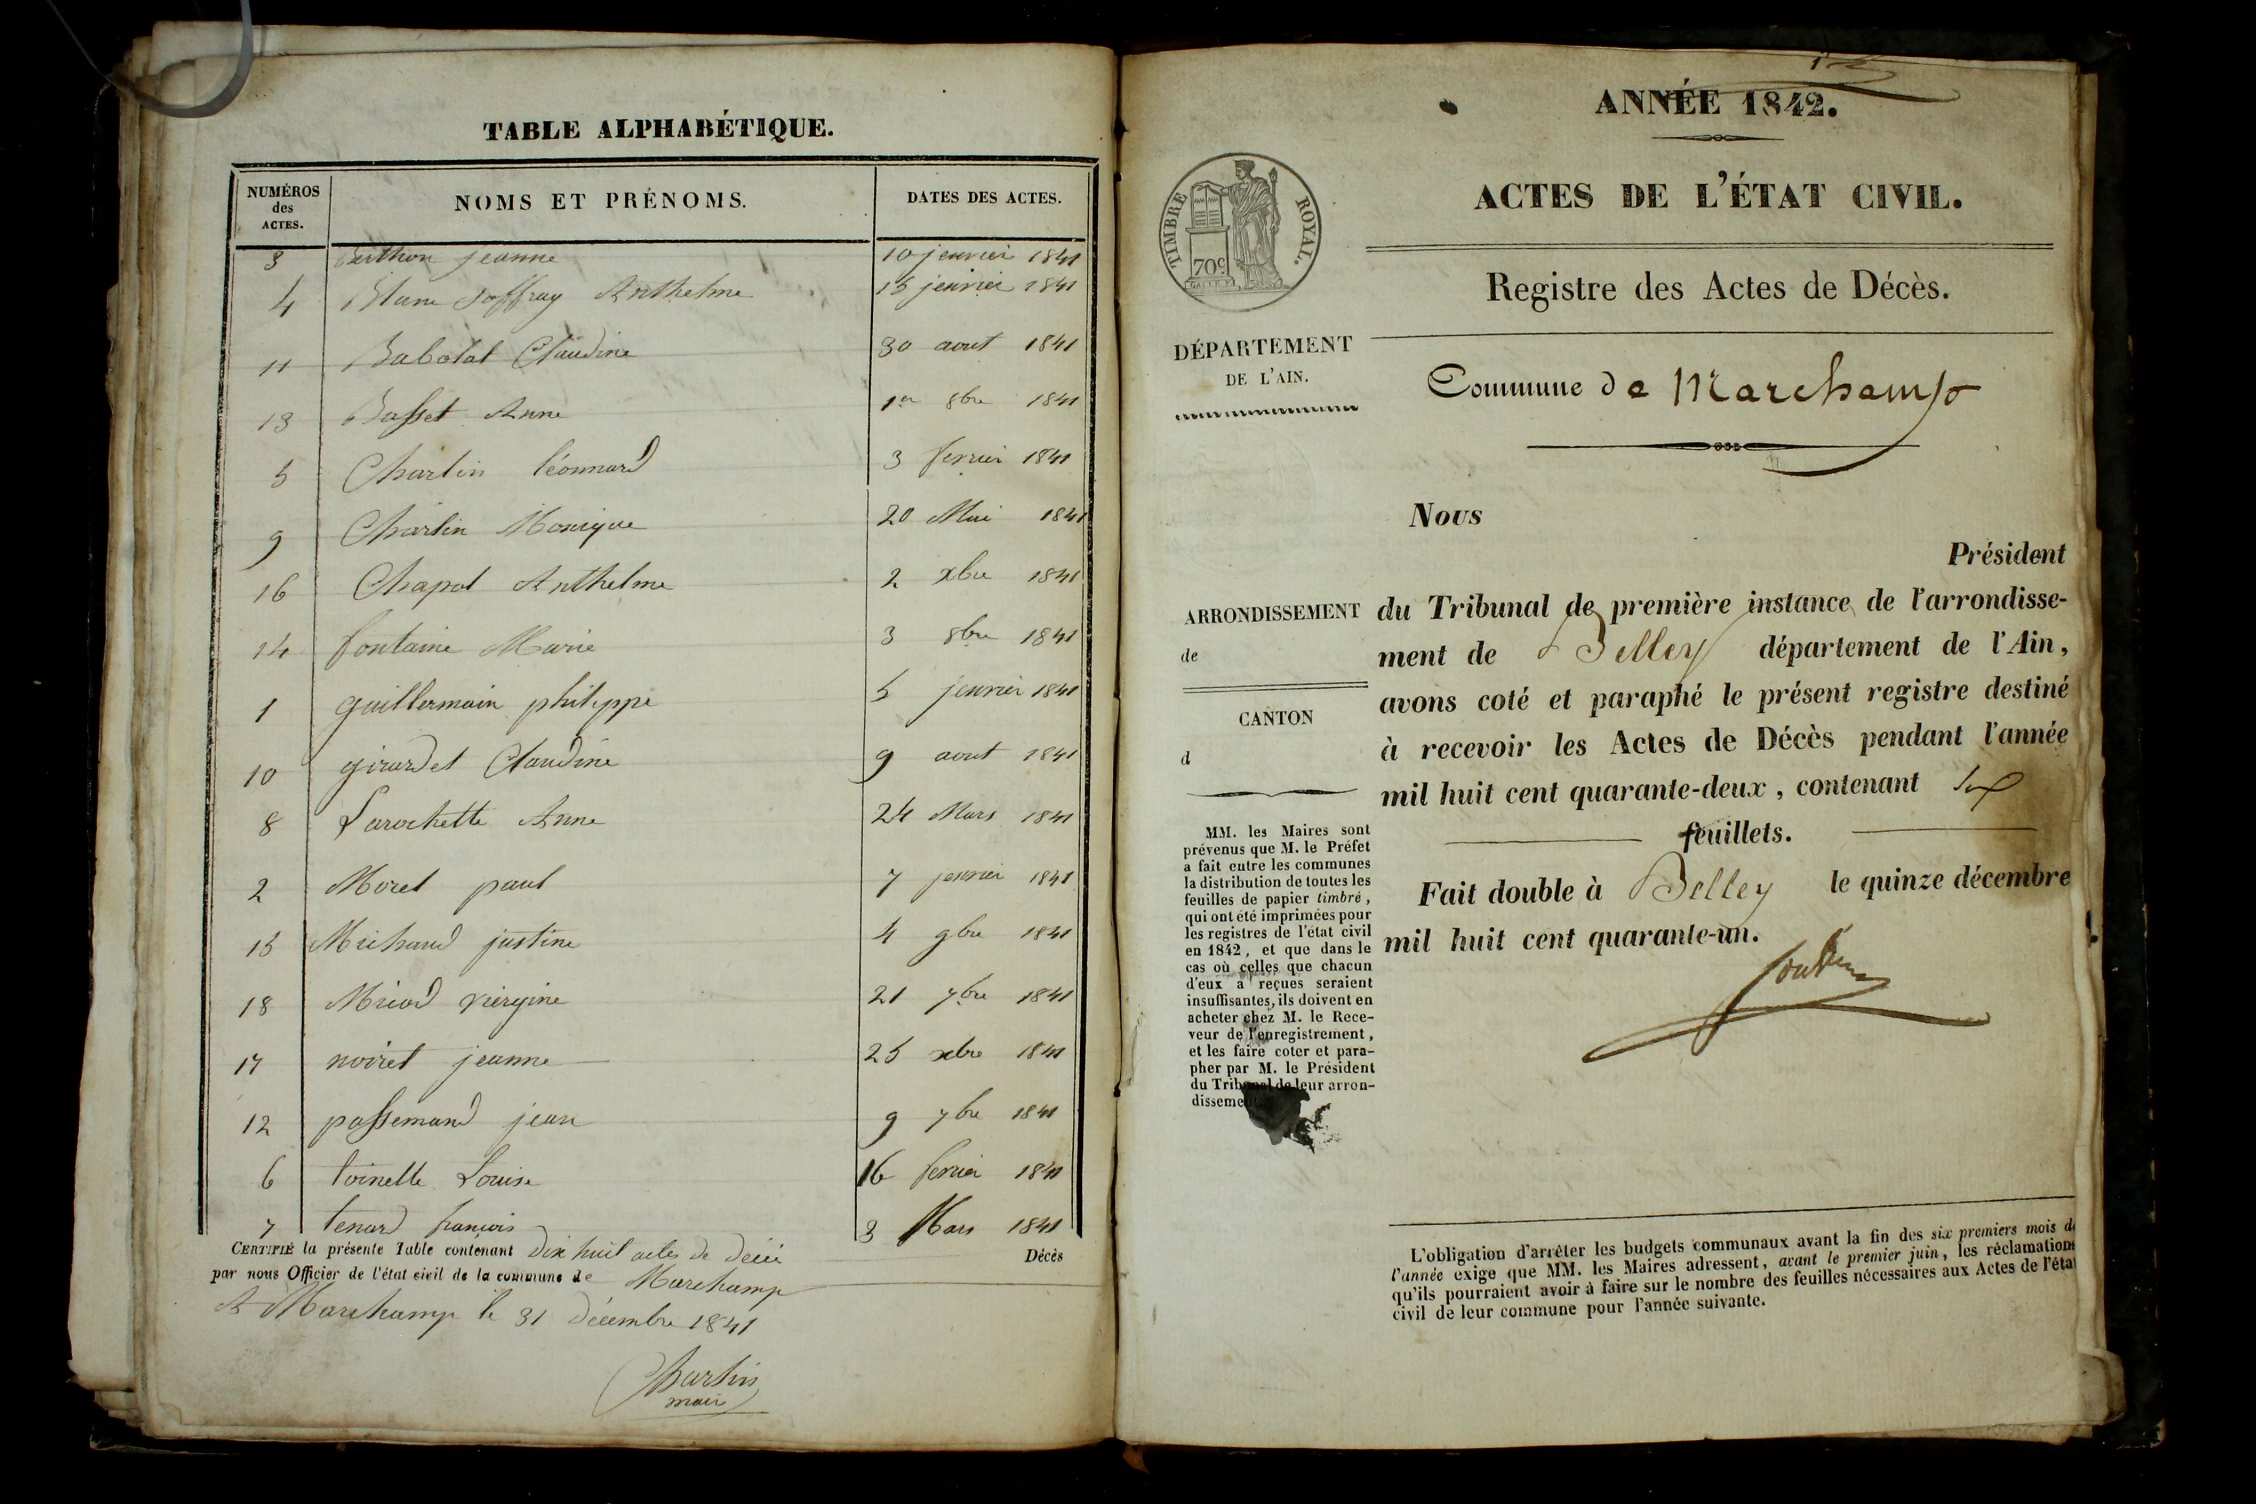 TABLE ALPHABÉTIQUE.
NUMÉROS des ACTES. NOMS ET PRÉNOMS. DATES DES ACTES.
3 Berthon jeanne 10 jenvier 1841
4 Blanc Joffray Anthelme 15 jenvier 1841
11 Babolat Claudine 30 aout 1841
13 Basset Anne 1er 8bre 1841
5 Charlin léonnard 3 fevrier 1841
9 Charlin Monique 20 Mai 1841
16 Chapot Anthelme 2 xbre 1841
14 fontaine Marie 3 8bre 1841
1 guillermain philippe 5 jenvier 1841
10 girardet Claudine 9 aout 1841
8 Larochette Anne 24 Mars 1841
2 Moret paul 7 jenvier 1841
15 Michaud justine 4 9bre 1841
18 vièrgine 21 7bre 1841
17 noiret jeanne 25 xbre 1841
12 passemard jean 9 7bre 1841
6 toinette Louise 16 fevrier 1841
7 tenard françois 3 Mars 1841
CERTIFIÉ la présente Table contenant Dix huit actes de Décè Décès
par nous Officier de l'état civil de la commune de Marchamp
A Marchamp le 31 Décembre 1841
Charlin
maire
ANNÉE 1842.
ACTES DE L'ÉTAT CIVIL.
TIMBRE ROYAL.
70c
Registre des Actes de Décès.
DÉPARTEMENT
DE L'AIN.
Commune de Marchamp
Nous
Président
ARRONDISSEMENT
de
CANTON
d
du Tribunal de première instance de l'arrondisse-
ment de Belley département de l'Ain,
avons coté et paraphé le présent registre destiné
à recevoir les Actes de Décès pendant l'année
mil huit cent quarante-deux, contenant six
feuillets.
Fait double à Belley le quinze décembre
mil huit cent quarante-un.
MM. les Maires sont
prévenus que M. le Préfet
a fait entre les communes
la distribution de toutes les
feuilles de papier timbré,
qui ont été imprimées pour
les registres de l'état civil
en 1842, et que dans le
cas où celles que chacun
d'eux a reçues seraient
insuffisantes, ils doivent en
acheter chez M. le Rece-
veur de l'enregistrement,
et les faire coter et para-
pher par M. le Président
du Tribunal de leur arron-
dissement
L'obligation d'arrêter les budgets communaux avant la fin des six premiers mois de
l'année exige que MM. les Maires adressent, avant le premier juin, les réclamations
qu'ils pourraient avoir à faire sur le nombre des feuilles nécessaires aux Actes de l'état
civil de leur commune pour l'année suivante.